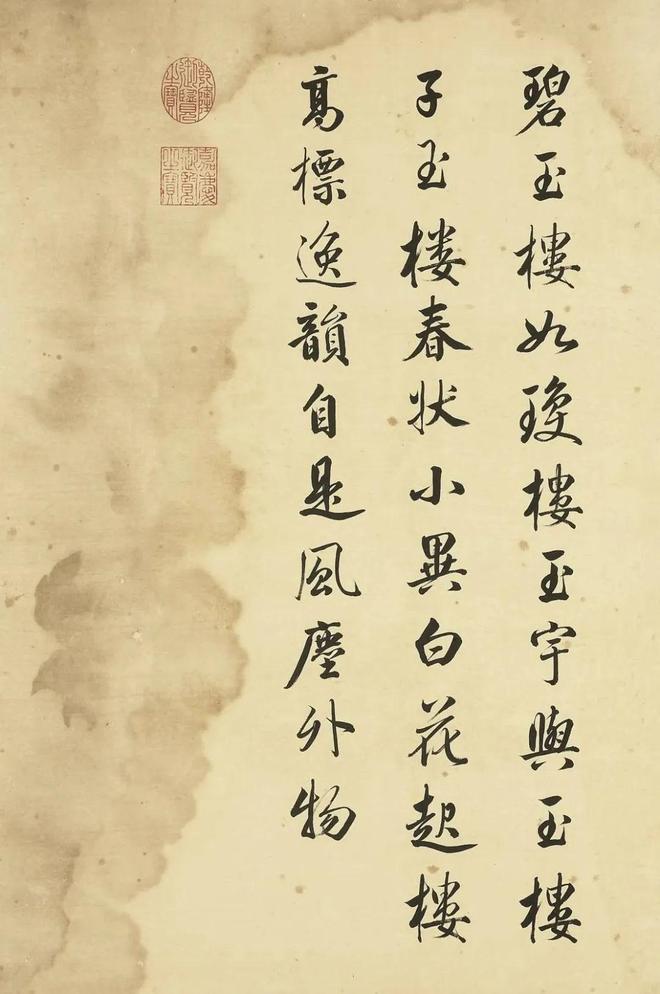 碧玉樓如瓊樓玉宇與玉樓
子玉楼春状小異白花起樓
高標逸韻自是風塵外物
乾隆御覽之寶
嘉慶御覽之寶